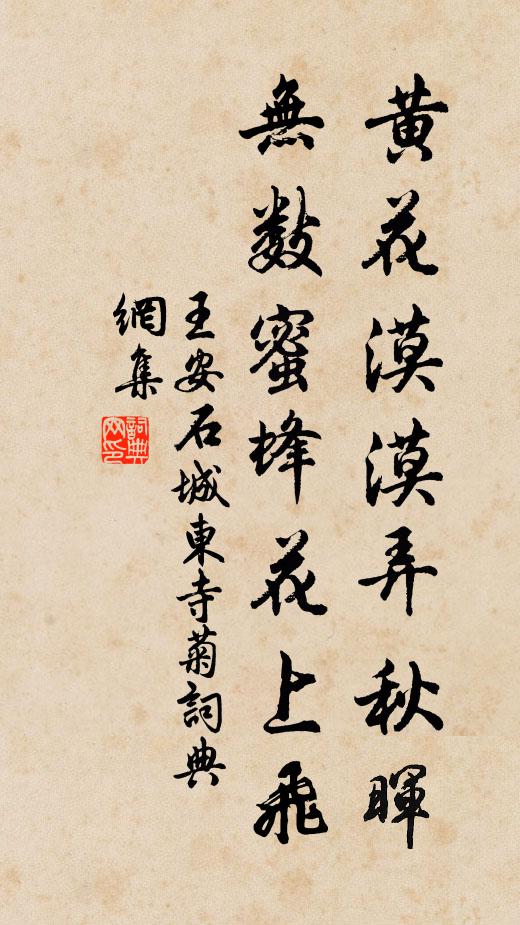 黃花漠漠弄秋暉
無數蜜蜂花上飛
王安石城東寺菊詞典
網集
詞典網印